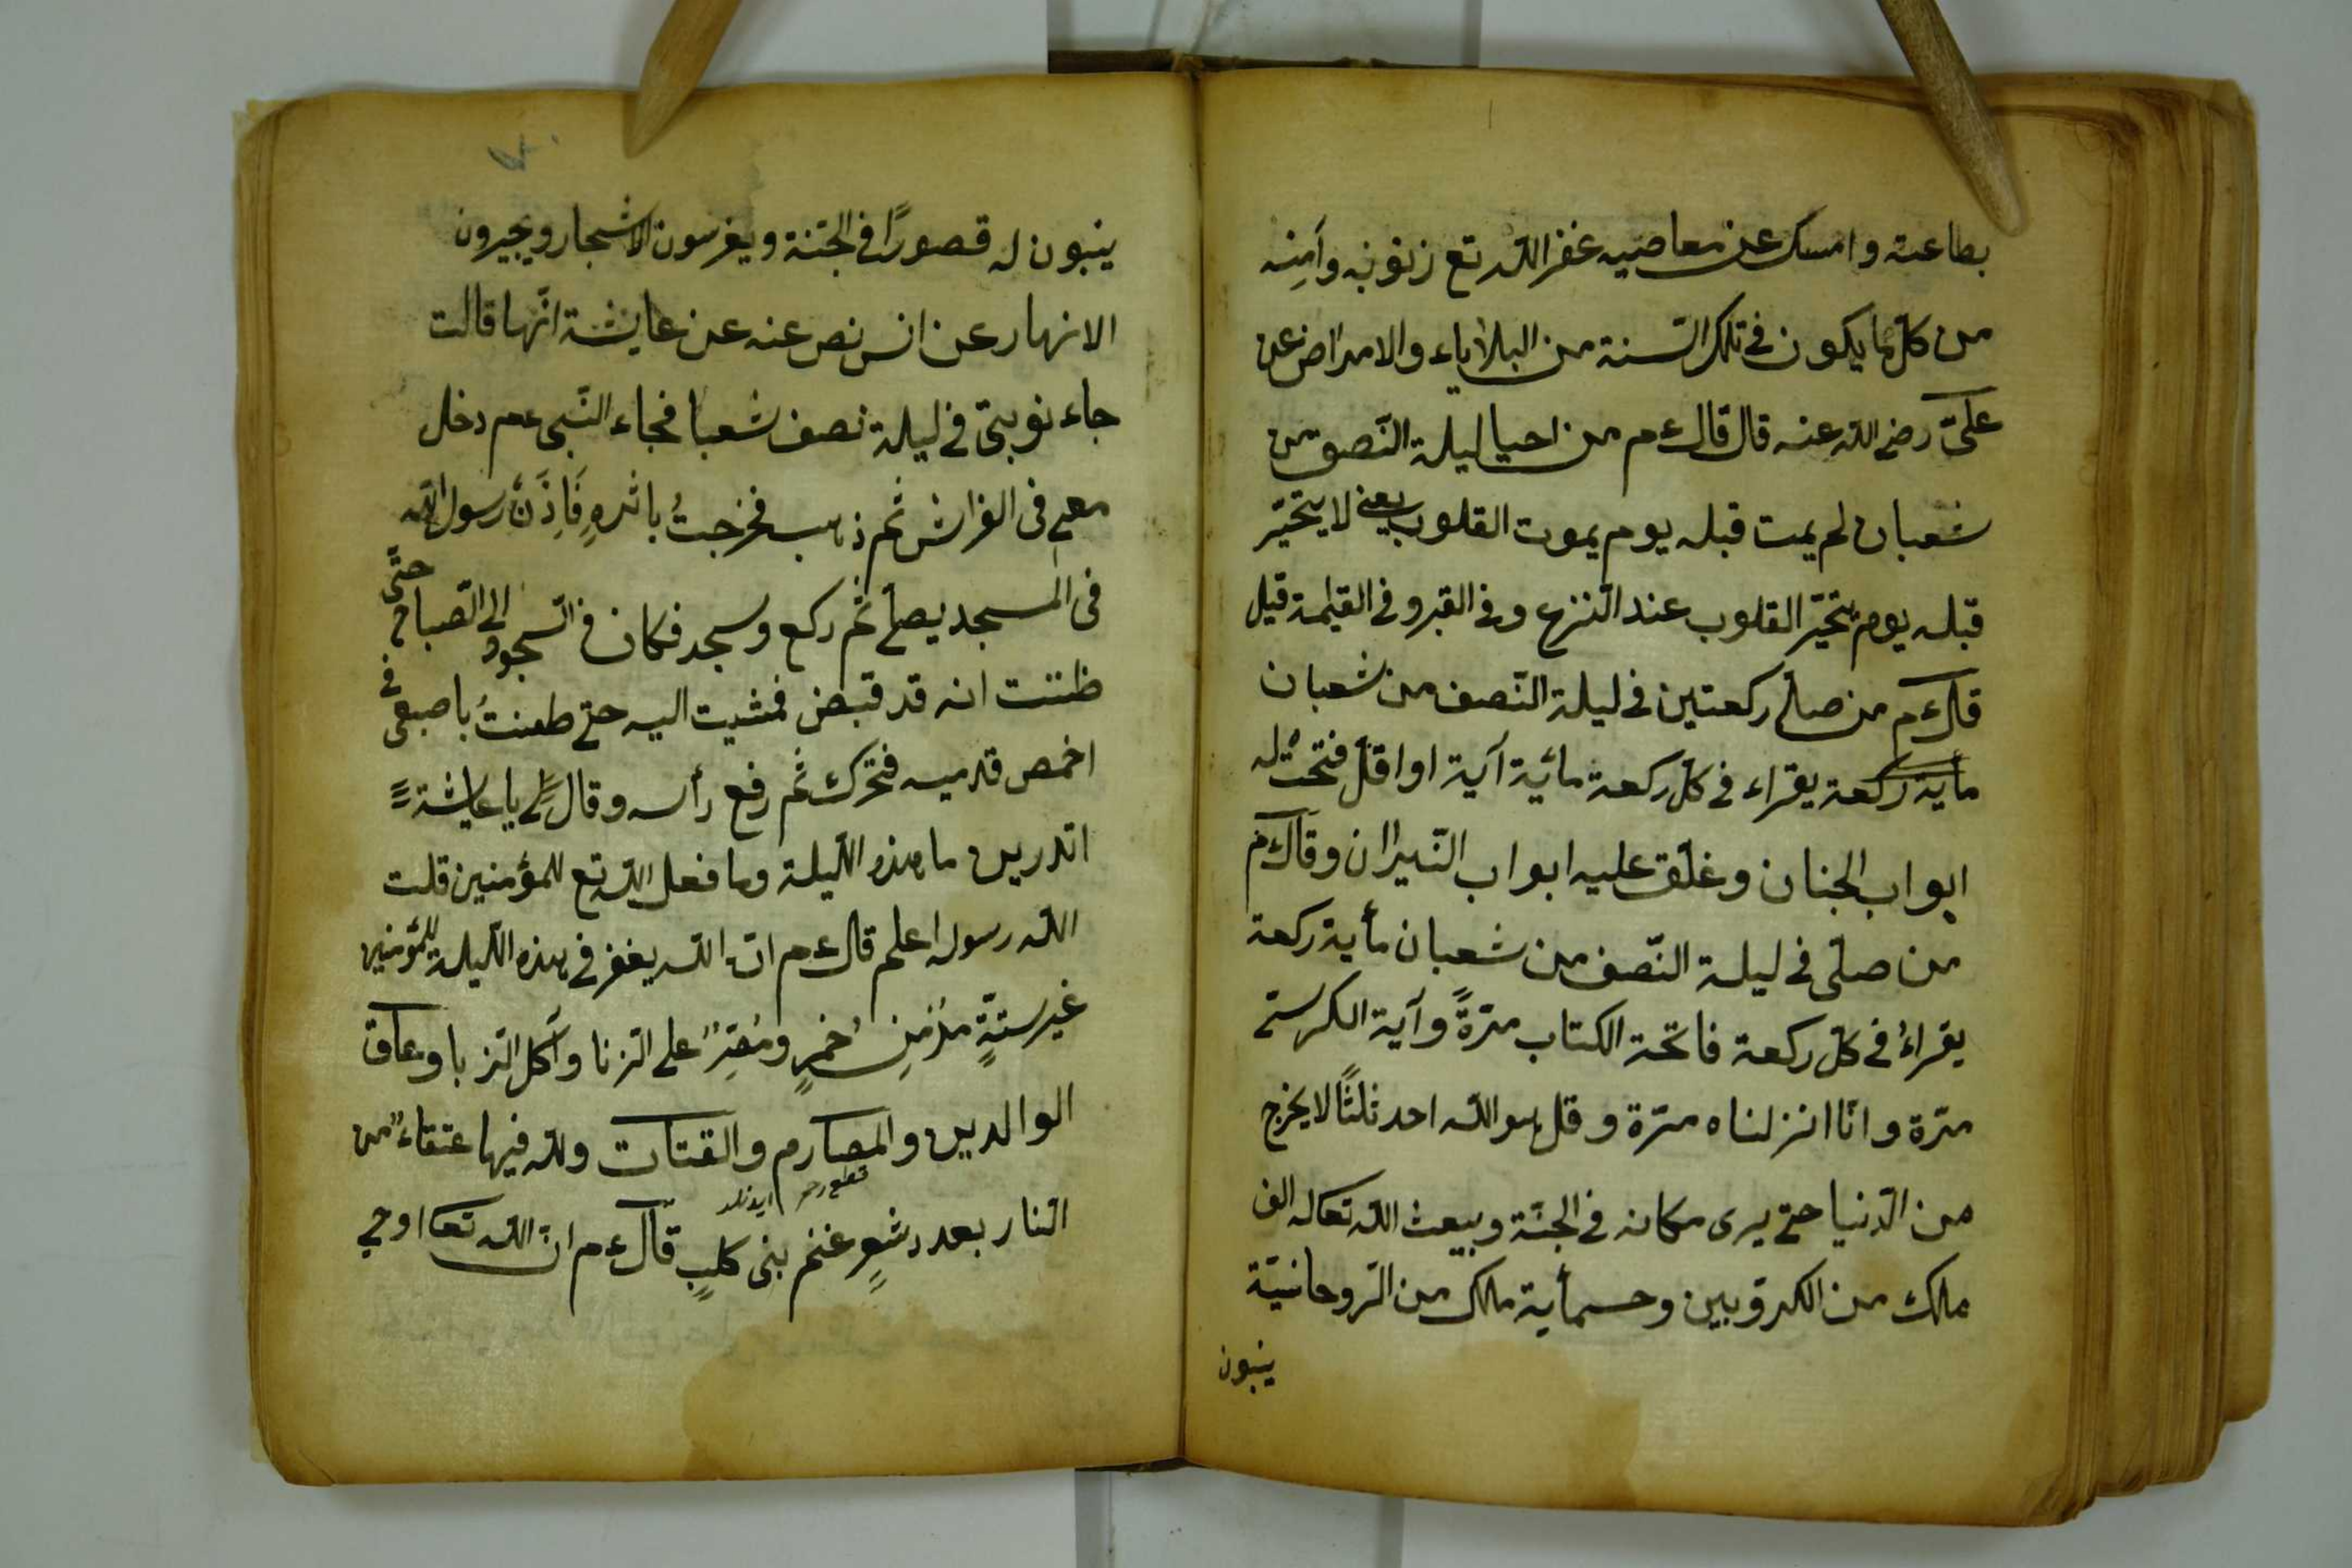 بطاعته وامسك عن معاصيه غفر الله تع زنوبه وآمِنه
من كلّ ما يكون في تلك السّنة من البلاياء والامراض عن
علىّ رضى الله عنه قال قال ءم من احيا ليلة النّصف من
شعبان لم يمت قبله يوم يموت القلوب يعنى لا يتحيّر
قبله يوم يتحيّر القلوب عند النّزع وفى القبر وفى القيٰمة قيل
قال ءم من صلّى ركعتين فى ليلة النّصف من شعبان
مأية ركعة يقراء فى كلّ ركعة مائية آية او اقلّ فتحتُ له
ابواب الجنان وغلّق عليه ابواب النّيران وقال ءم
من صلّى فى ليلة النّصف من شعبان مأية ركعة
يقراءُ فى كلّ ركعة فاتحة الكتاب مرّةً وآية الكرستى
مرّة وانّا انزلناه مرّة وقل هو الله احد ثلثًا لا يخرج
من الدّنيا حتى يرى مكانه فى الجنّة ويبعث الله تعا له الف
ملك من الكروّبين وخسمأية ملك من الرّوحانيّة
ينبون
ينبون له قصورًا فى الجنّة ويغرسون الاشجار ويجيرون
الانهار عن انس نص عنه عن عايشة انّها قالت
جاء نوبتى فى ليلة نصف شعبا فجاء النّبى عم دخل
معى فى الفراش ثم ذهب فخرجتُ باثرهِ فَاِذَنْ رسول الله
فى المسجد يصلّى ثم ركع وسجد فكان فى السّجود الى الصّباح حتّى
ظننت انه قد قبض فمشيت اليه حتى طعنتُ باصبعى فى
اخمص قدميه فتحرّك ثم رفع رأسه وقال لى يا عايشة
اتدرين ما هذه اللّيلة وما فعل الله تع للمؤمنين قلت
الله رسوله اعلم قال ءم انّ الله يغفر فى هذه اللّيلة للمؤمنين
غير ستّةٍ مدْمِن خمرٍ ومُصِرٌ على الزنا وآكل الرّبا وعاقّ
الوالدين والمصارم والقتات ولله فيها عتقاءٌ من
قطع رحم ايدنلر
النار بعدد شعرِ غنم بنى كلبٍ قال ءم انّ الله تعا اوحى